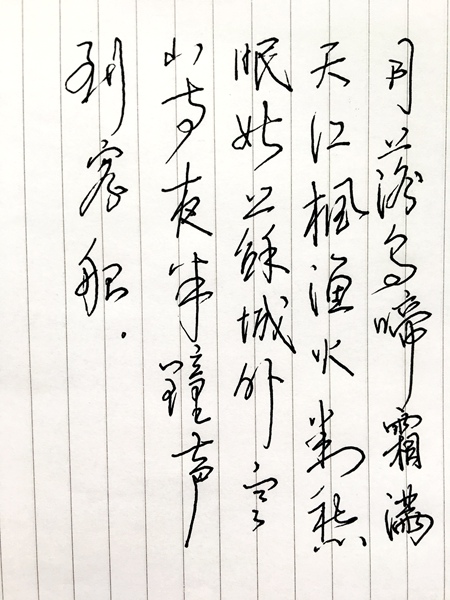 月落乌啼霜满
天江枫渔火对愁
眠姑蘇城外寒
山寺夜半鐘声
到客船.